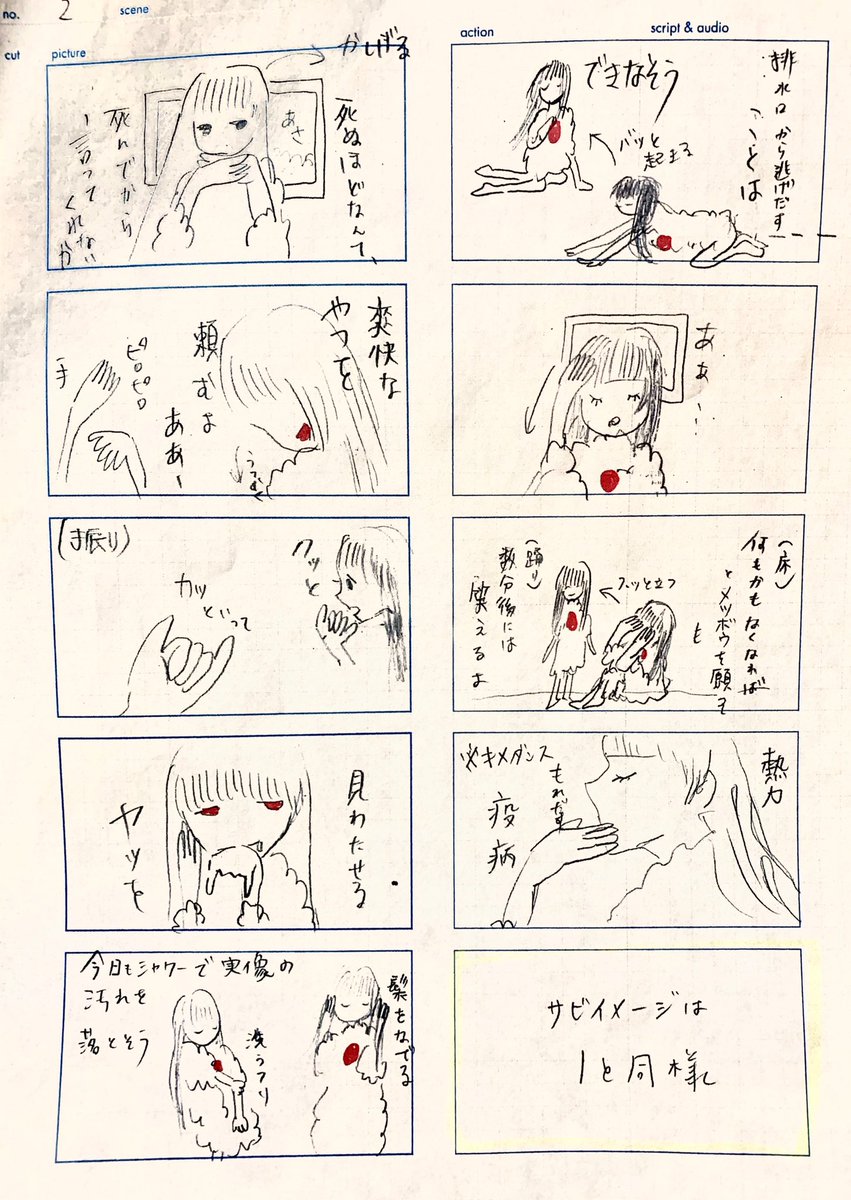 no. 2
scene
cut
picture
action
script & audio
かげる
死ぬほどなんて、
死んでから
言って
くれないか
あさ
爽快な
やつを
頼むよ
ああー
ピロピロ
手
うつむく
(手振り)
クッと
カッ
といって
見わたせる
ヤツを
今日もシャワーで実像の
汚れを
落とそう
洗うフリ
髪をなでる
排水口から逃げだす
ことは
できなそう
バッと
起きる
あぁー
(床)
何もかもなくなれば
とメツボウを願って
も
スッと立つ
(踊り)
数分後には
笑えるよ
熱力
※キメダンス
疫病
サビイメージは
1と同様